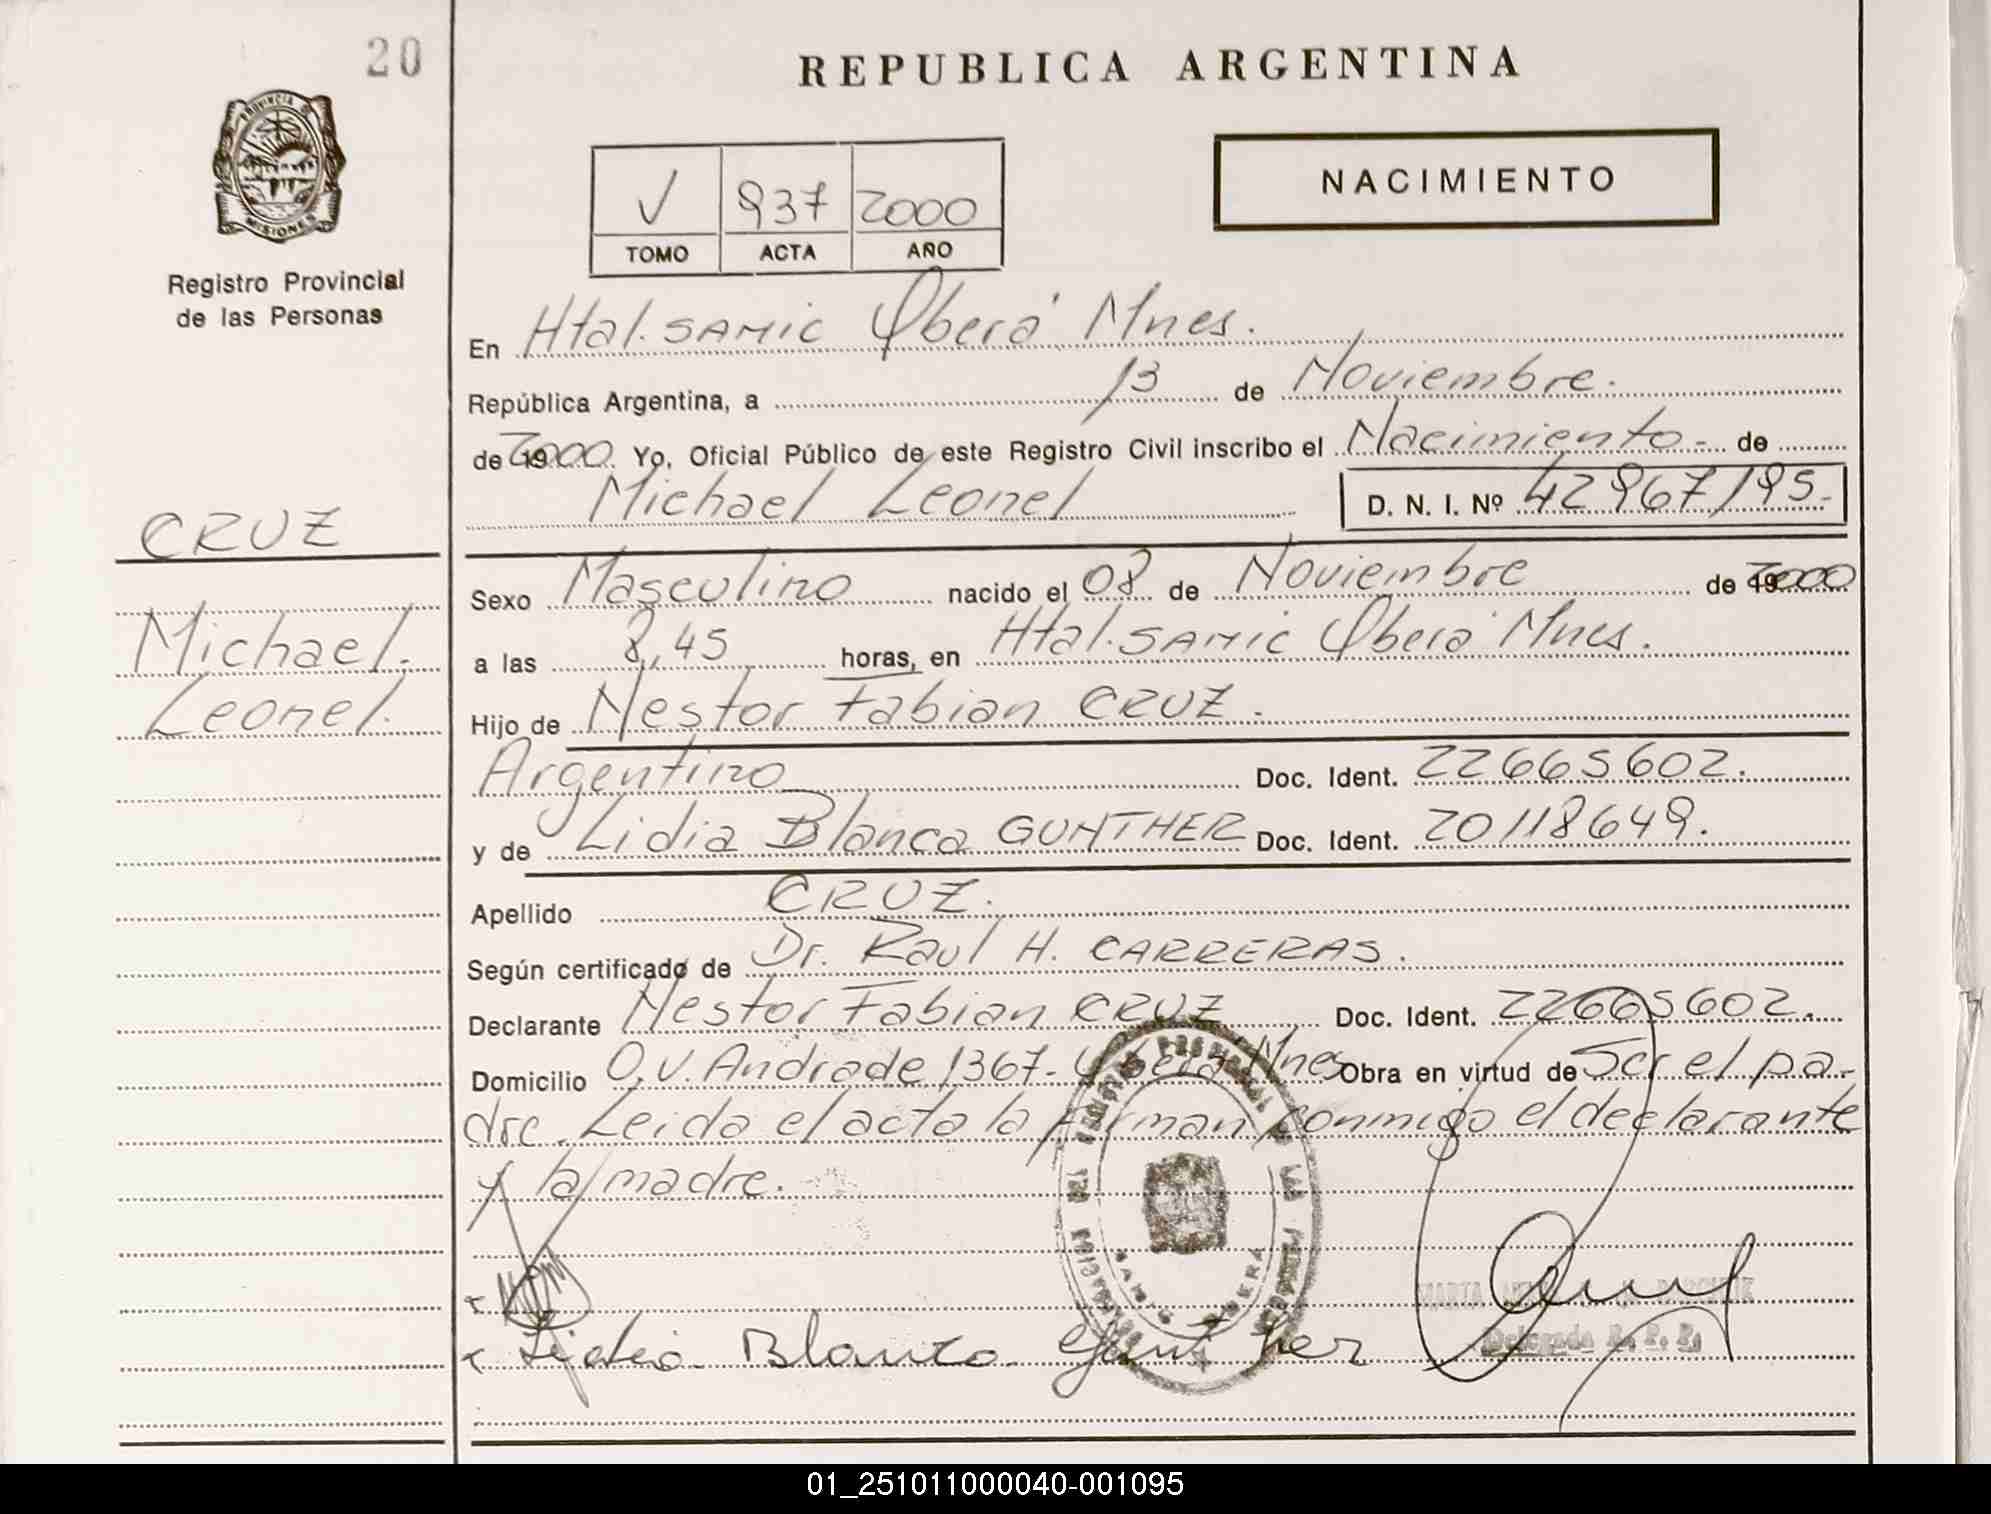 20
REPUBLICA ARGENTINA
NACIMIENTO
V 937 2000
TOMO ACTA AÑO
PROVINCIA DE MISIONES
Registro Provincial
de las Personas
En Htal. SAMIC Oberá Mnes.
República Argentina, a 13 de Noviembre.
de 2000 Yo, Oficial Público de este Registro Civil inscribo el Nacimiento - de
Michael Leonel D. N. I. Nº 42967195.-
CRUZ
Michael.
Leonel.
Sexo Masculino nacido el 08 de Noviembre de 2000
a las 8,45 horas, en Htal. SAMIC Oberá Mnes.
Hijo de Nestor Fabian CRUZ.
Argentino Doc. Ident. 22665602.
y de Lidia Blanca GUNTHER Doc. Ident. 20118649.
Apellido CRUZ.
Según certificado de Dr. Raul H. CARRERAS.
Declarante Nestor Fabian CRUZ Doc. Ident. 22665602.
Domicilio O.V. Andrade 1367- Oberá Mnes Obra en virtud de Ser el pa-
dre. Leida el acta la firman conmigo el declarante
y la madre.
Lidia Blanca Gunther
Delegada R. P. P.
01_251011000040-001095